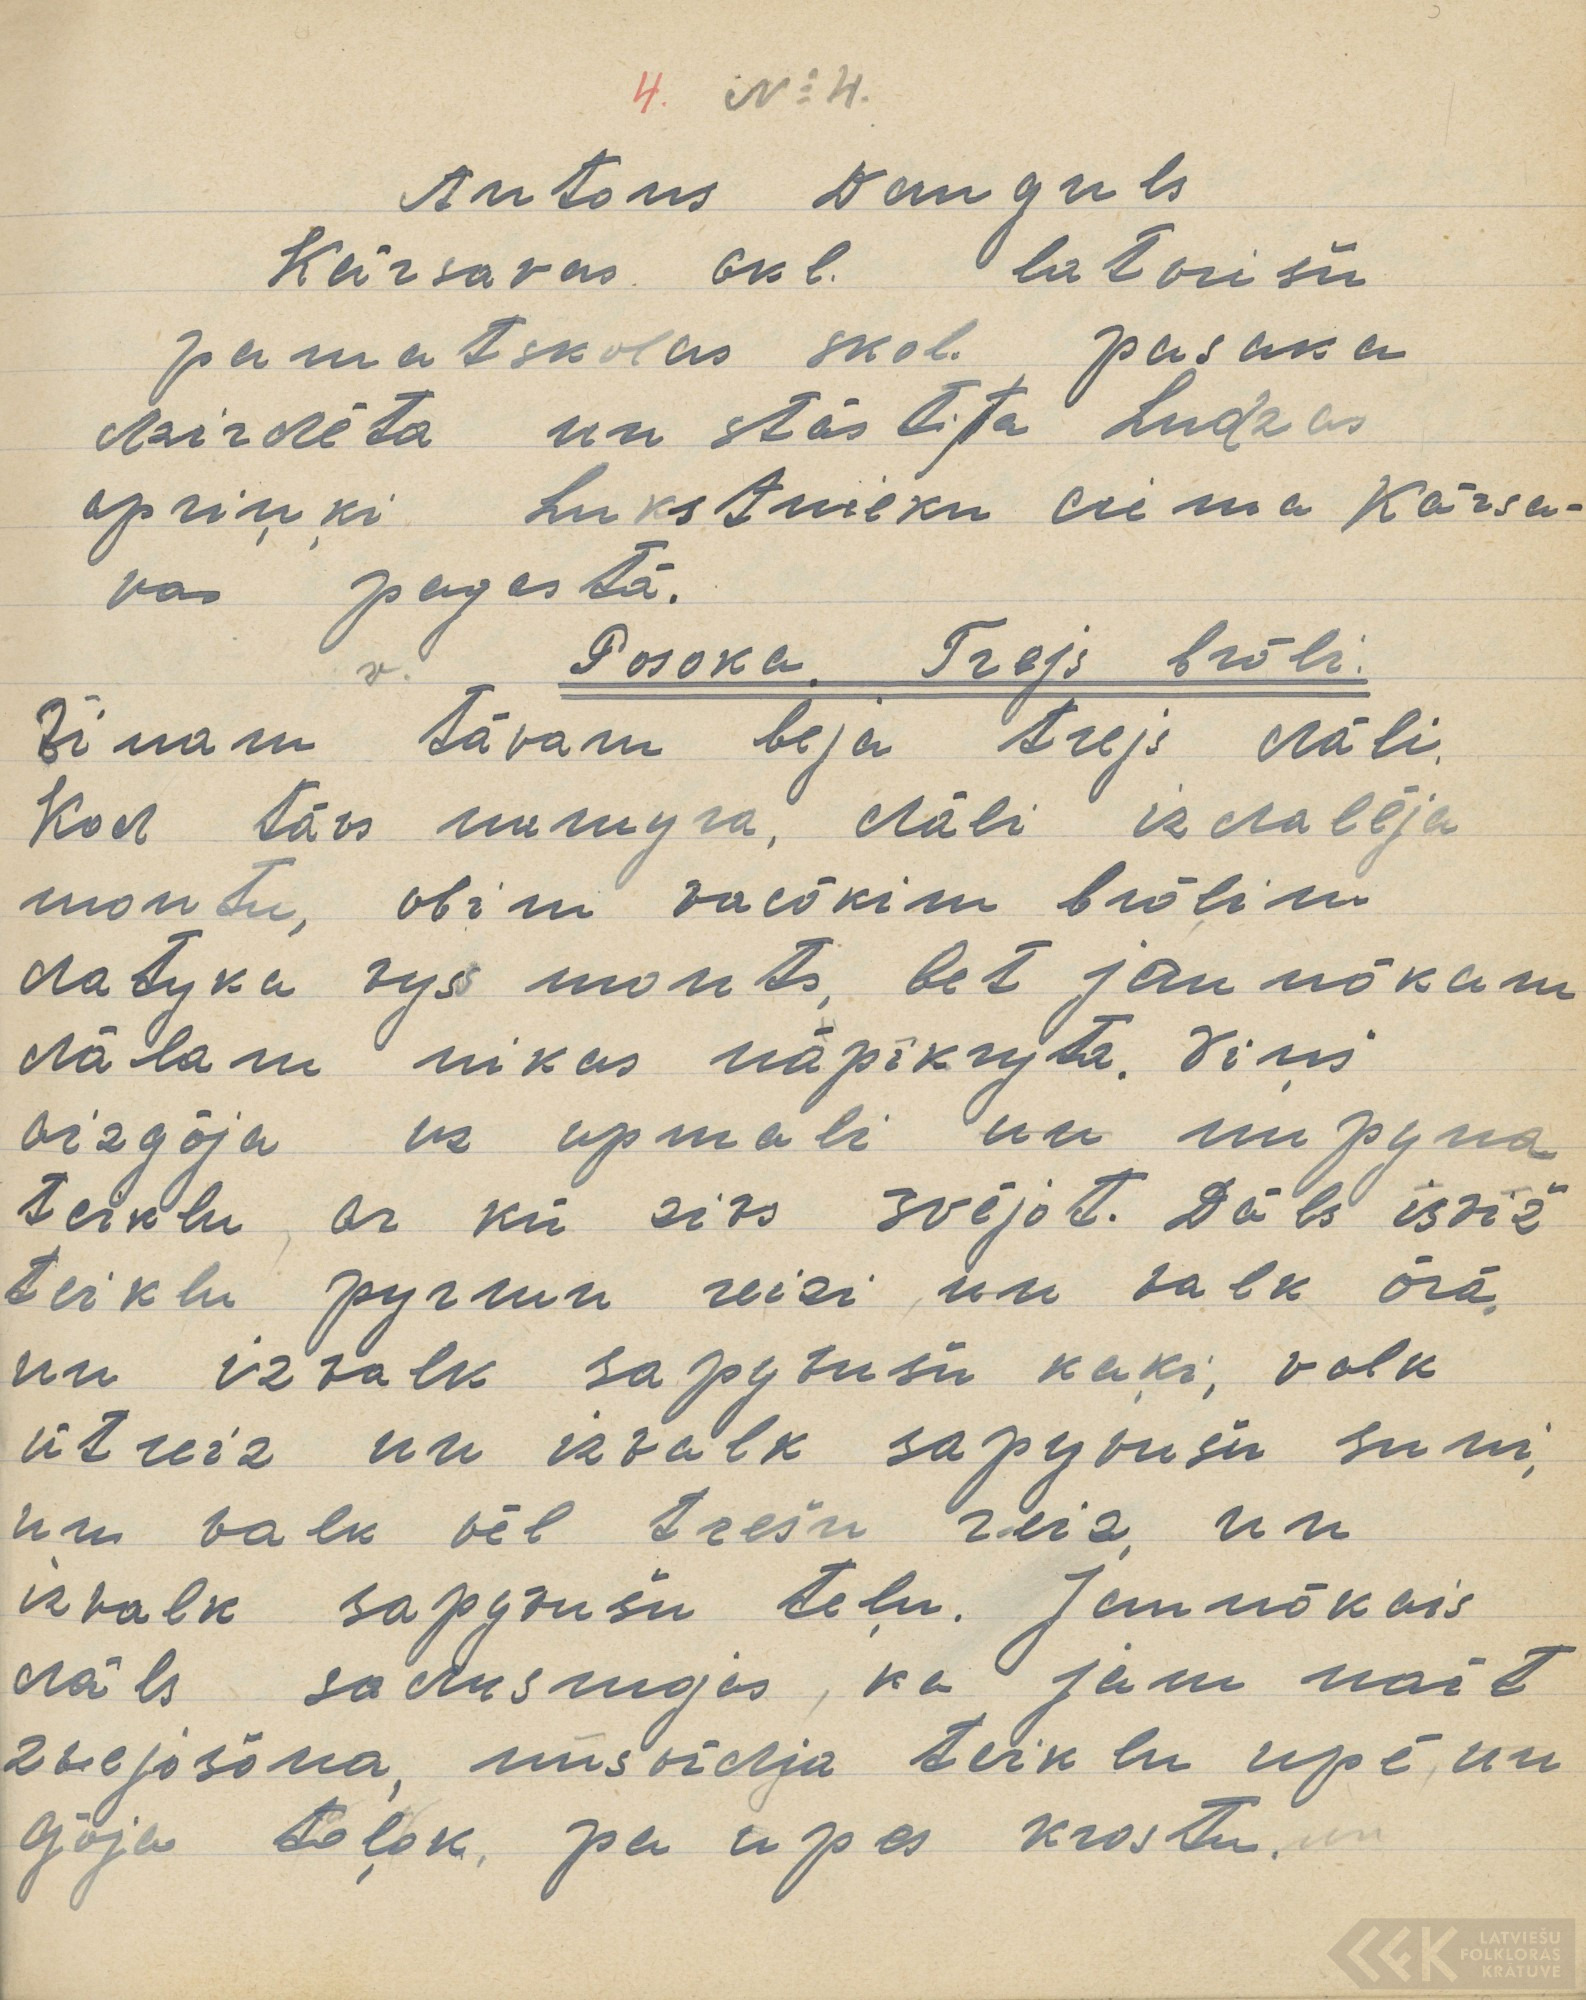 4. № 4.
Antons Danguls
Kārsavas okl. latvišu
pamatskolas skol. pasaka
dzirdēta un stāstita Ludzas
apriņķi Lukstnieku ciema Kārsa-
vas pagastā.
v. Posoka. Trejs brōli.
Vīnam tāvam beja trejs dāli.
Kod tāvs numyra, dāli izdalēja
montu, obim vacōkim brōļim
datyka vyss monts, bet jaunōkam
dālam nikas nāpīkryta. Viņš
aizgōja uz upmali un nupyna
teiklu, ar kū zivs žvējot. Dāls īsviž
teiklu pyrmu reizi un valk ōrā,
un izvalk sapyvušu kaķi, volk
ūtreiz un izvalk sapyvušu suni,
un valk vēl trešu reiz, un
izvalk sapyvušu teļu. Jaunōkais
dāls sadusmojas, ka jam nait
zvejošōna, nūsvīdja teiklu upē, un
gōja toļok, pa upes krostu. un
LATVIEŠU
FOLKLORAS
KRĀTUVE